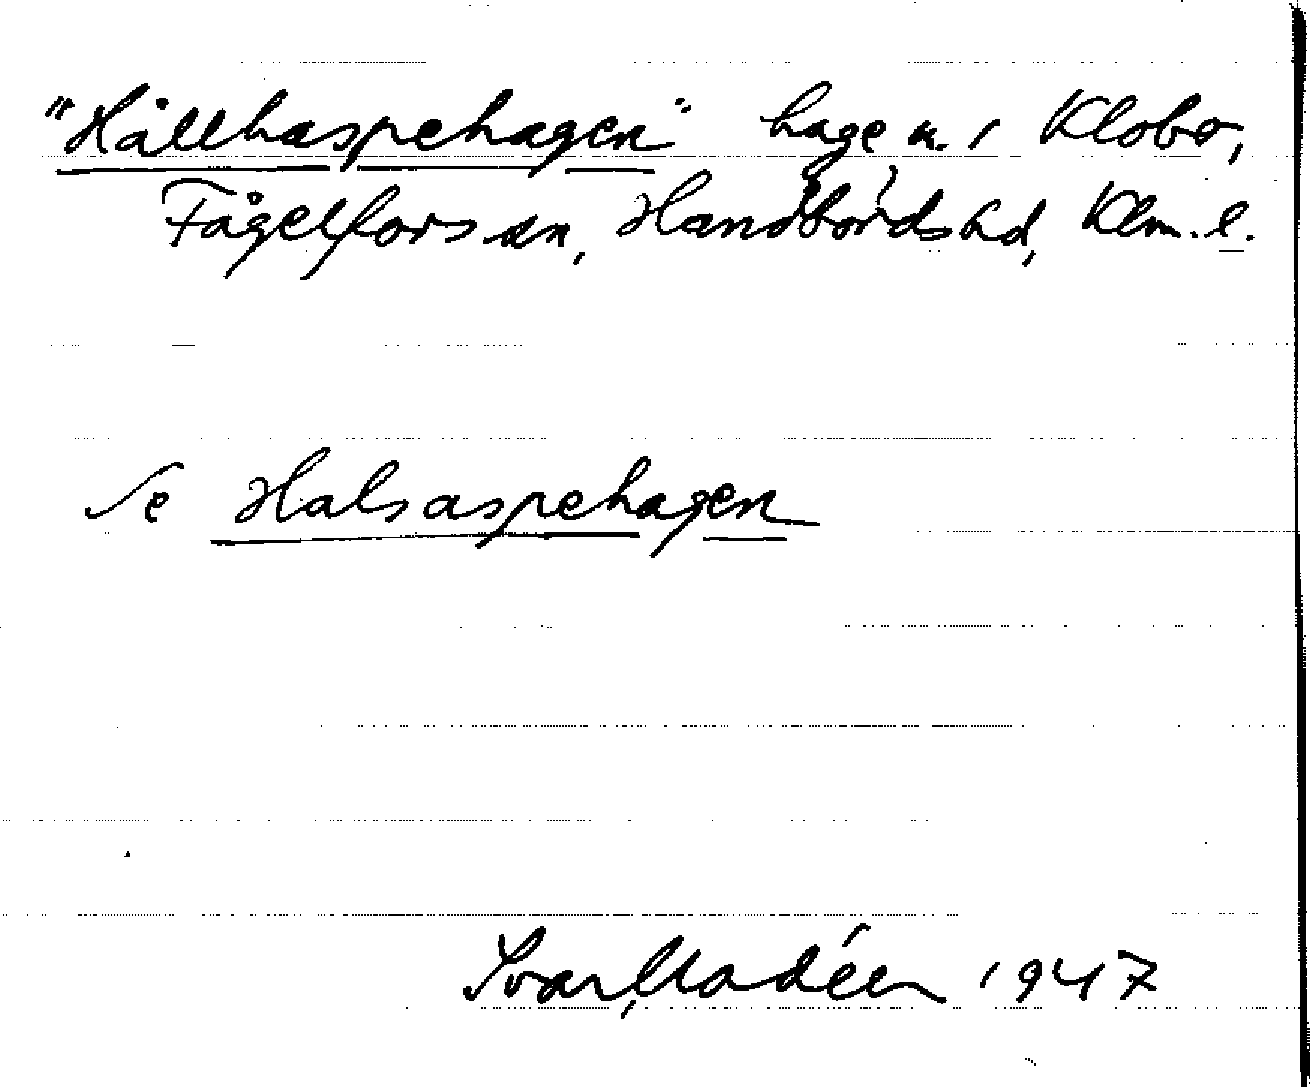 "Hållhaspehagen" hage u. i Klobo,
Fågelfors sn, Handbörds hd, Klm. l.
Se Halsaspehagen
Ivar Modéer 1947